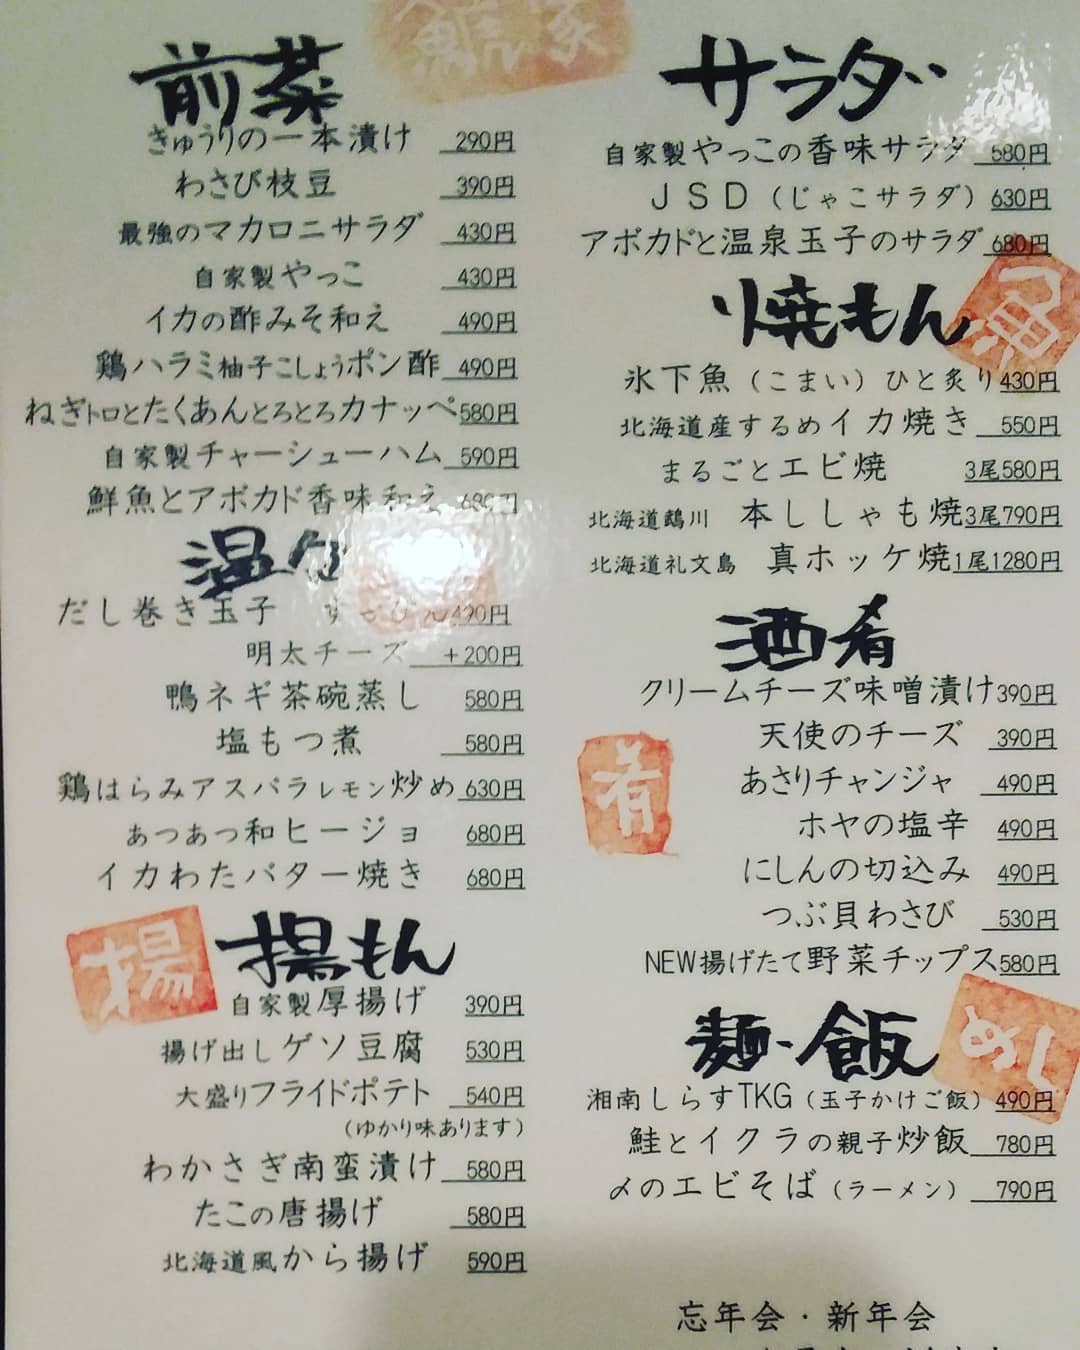 前菜
きゅうりの一本漬け 290円
わさび枝豆 390円
最強のマカロニサラダ 430円
自家製やっこ 430円
イカの酢みそ和え 490円
鶏ハラミ柚子こしょうポン酢 490円
ねぎトロとたくあんとろとろカナッペ 580円
自家製チャーシューハム 590円
鮮魚とアボカド香味和え 680円
温
だし巻き玉子 490円
明太チーズ +200円
鴨ネギ茶碗蒸し 580円
塩もつ煮 580円
鶏はらみアスパラレモン炒め 630円
あつあつ和ヒージョ 680円
イカわたバター焼き 680円
揚
揚もん
自家製厚揚げ 390円
揚げ出しゲソ豆腐 530円
大盛りフライドポテト 540円
(ゆかり味あります)
わかさぎ南蛮漬け 580円
たこの唐揚げ 580円
北海道風から揚げ 590円
サラダ
自家製やっこの香味サラダ 580円
JSD(じゃこサラダ) 630円
アボカドと温泉玉子のサラダ 680円
焼もん
魚
氷下魚(こまい)ひと炙り 430円
北海道産するめイカ焼き 550円
まるごとエビ焼 3尾580円
北海道鵡川 本ししゃも焼 3尾790円
北海道礼文島 真ホッケ焼 1尾1280円
酒肴
クリームチーズ味噌漬け 390円
天使のチーズ 390円
肴
あさりチャンジャ 490円
ホヤの塩辛 490円
にしんの切込み 490円
つぶ貝わさび 530円
NEW揚げたて野菜チップス 580円
麺・飯
めし
湘南しらすTKG(玉子かけご飯) 490円
鮭とイクラの親子炒飯 780円
〆のエビそば(ラーメン) 790円
忘年会・新年会